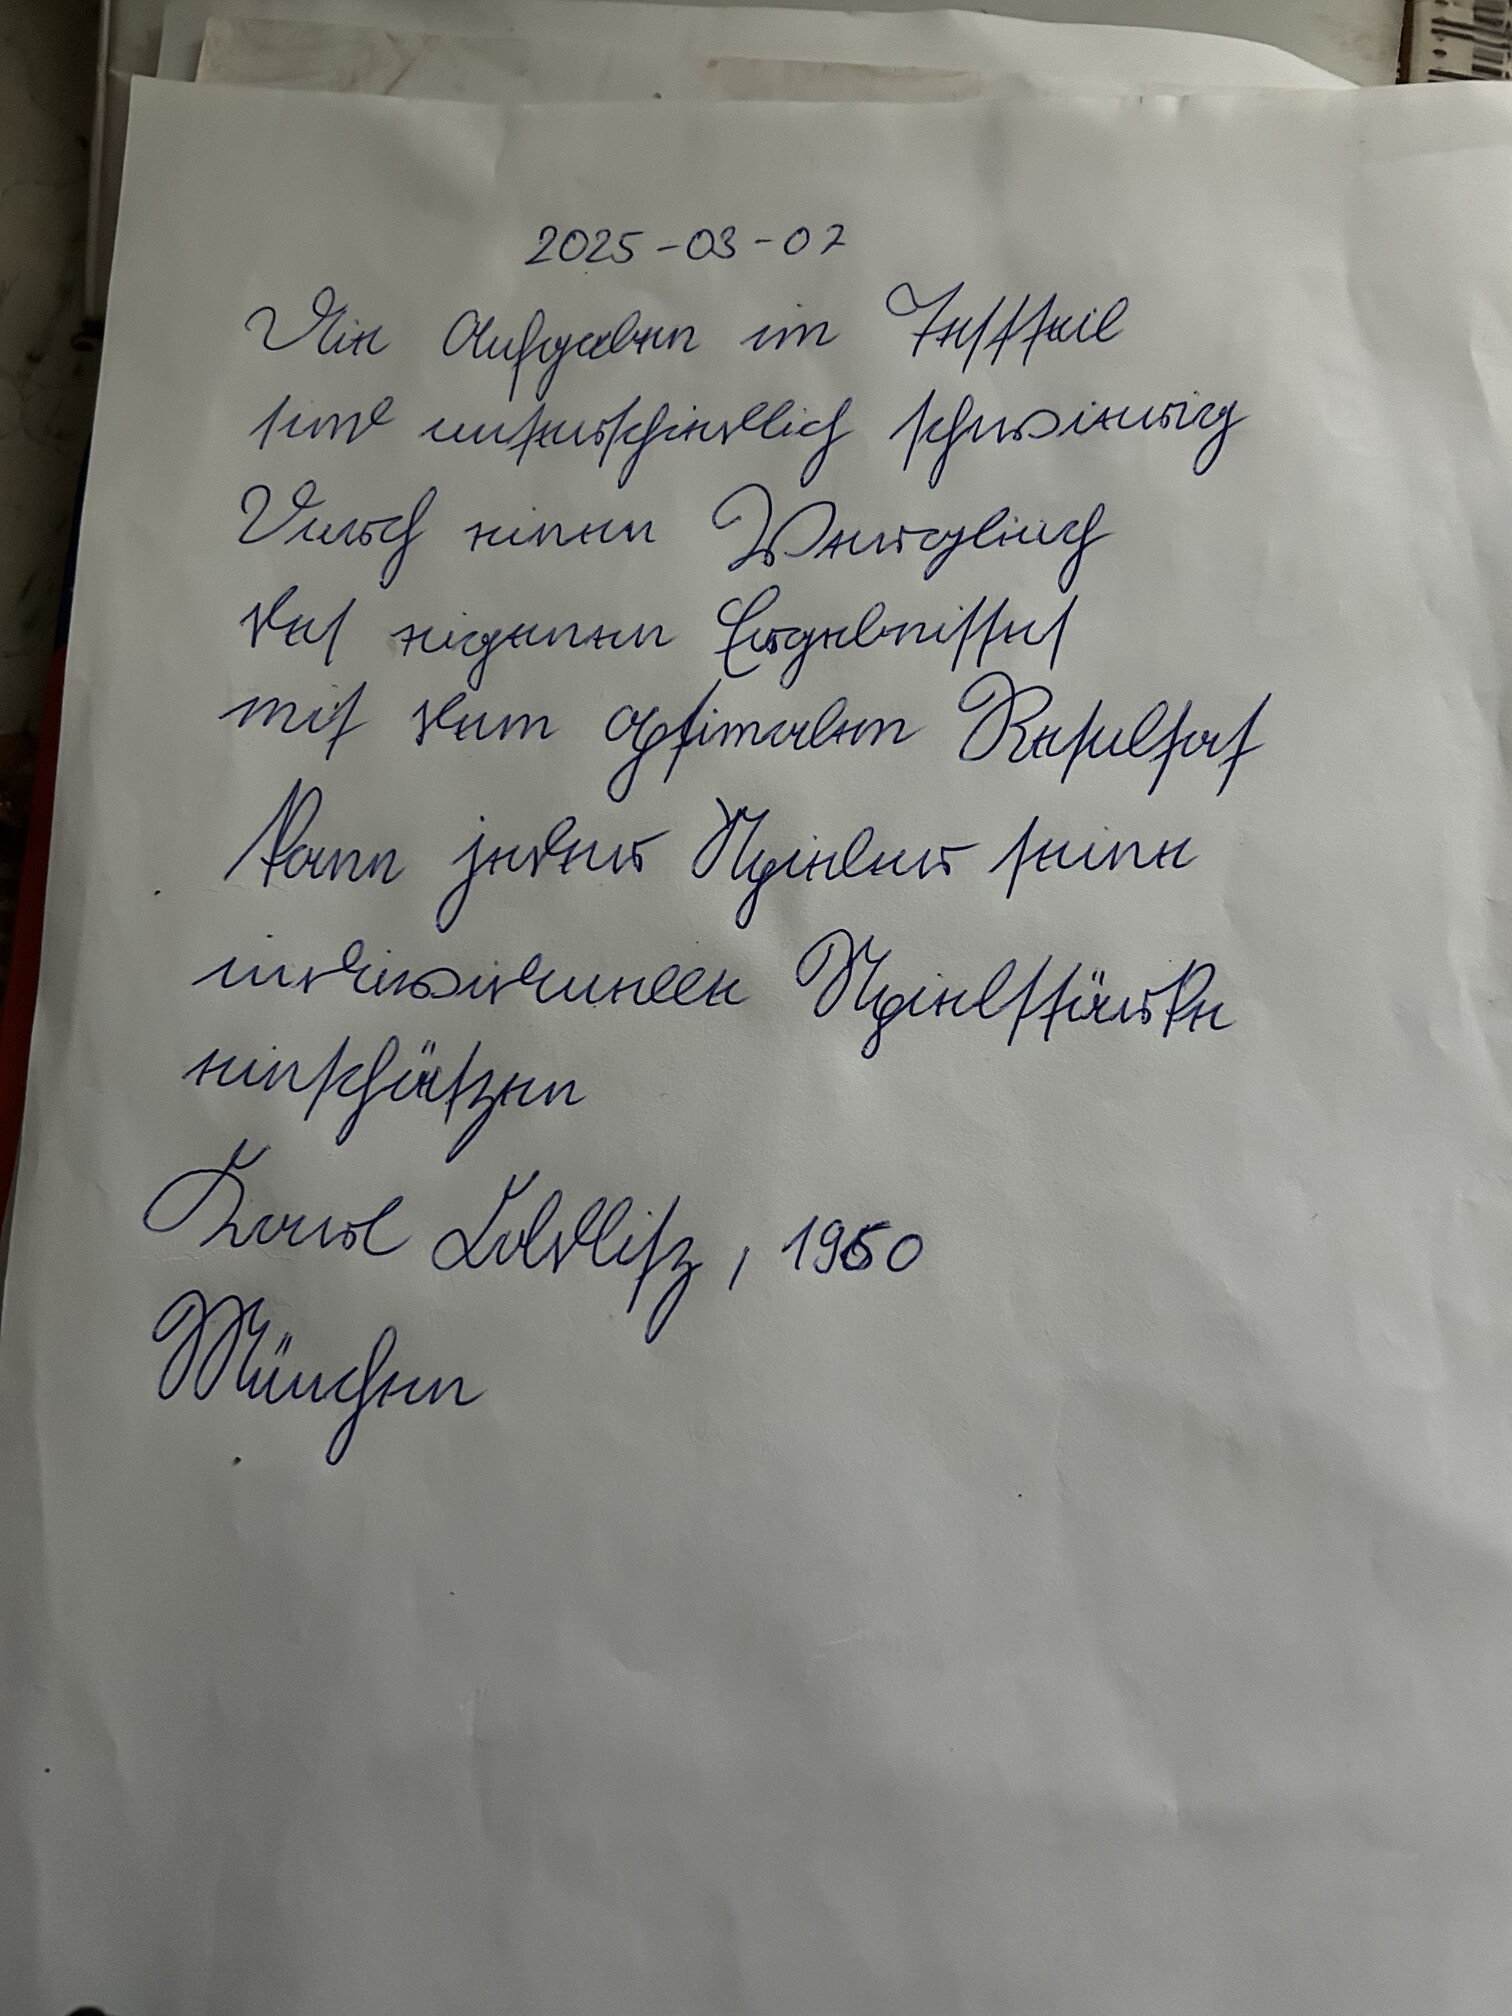 2025-03-07
Die Aufgaben im Testteil
sind unterschiedlich schwierig
Durch einen Vergleich
des eigenen Ergebnisses
mit dem optimalen Resultat
kann jeder Spieler seine
individuelle Spielstärke
einschätzen
Karl Lobdlitz, 1960
München